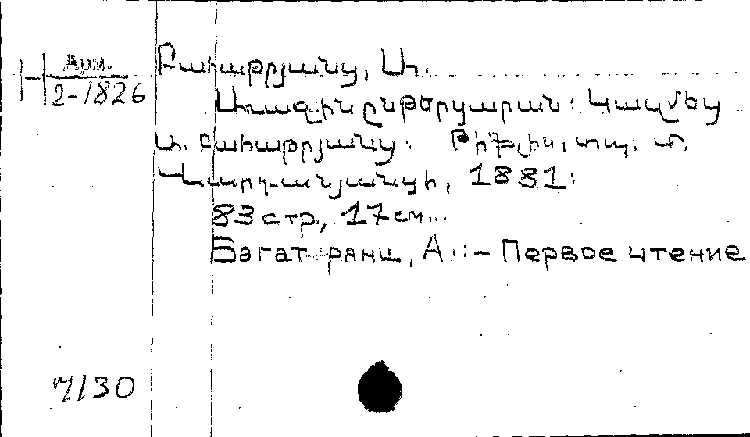 Арм.
Н 2-1826
Բահաթրյանց, Ա.
Առաջին ընթերցարան: Կազմեց
Ա. Բահաթրյանց: Թիֆլիս, տպ. Մ.
Վարդանյանցի, 1881:
83 стр., 17 см.
Багатрянц, А.:- Первое чтение
7130